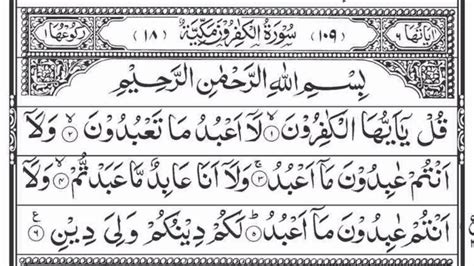 اٰیَاتُهَا ٦ (١٠٩) سُوْرَةُ الْكٰفِرُوْنَ مَكِّیَّةٌ (١٨) رُكُوْعُهَا ١
بِسْمِ اللّٰهِ الرَّحْمٰنِ الرَّحِیْمِ
قُلْ یٰۤاَیُّهَا الْكٰفِرُوْنَ ١ لَاۤ اَعْبُدُ مَا تَعْبُدُوْنَ ٢ وَلَاۤ
اَنْتُمْ عٰبِدُوْنَ مَاۤ اَعْبُدُ ٣ وَلَاۤ اَنَا عَابِدٌ مَّا عَبَدْتُّمْ ٤ وَلَاۤ
اَنْتُمْ عٰبِدُوْنَ مَاۤ اَعْبُدُ ٥ لَكُمْ دِیْنُكُمْ وَلِیَ دِیْنِ ٦ ع